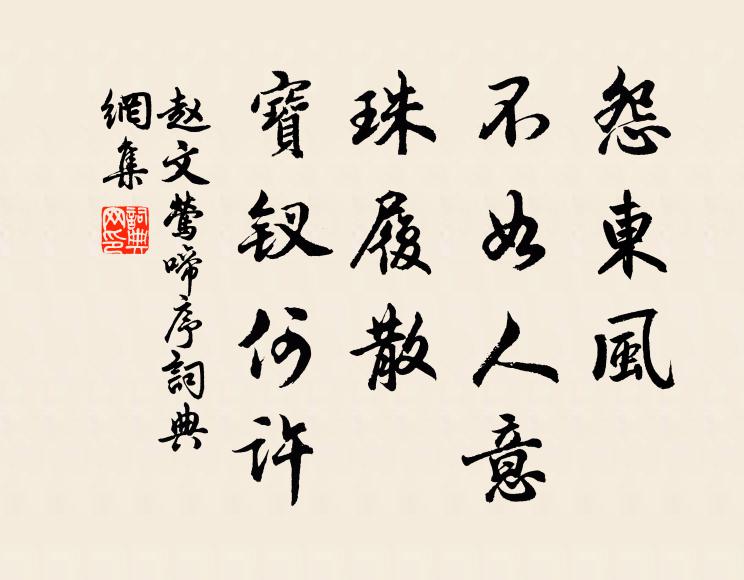 怨東風
不如人意
珠履散
寶釵何許
赵文鶯啼序詞典
網集
詞典
网印